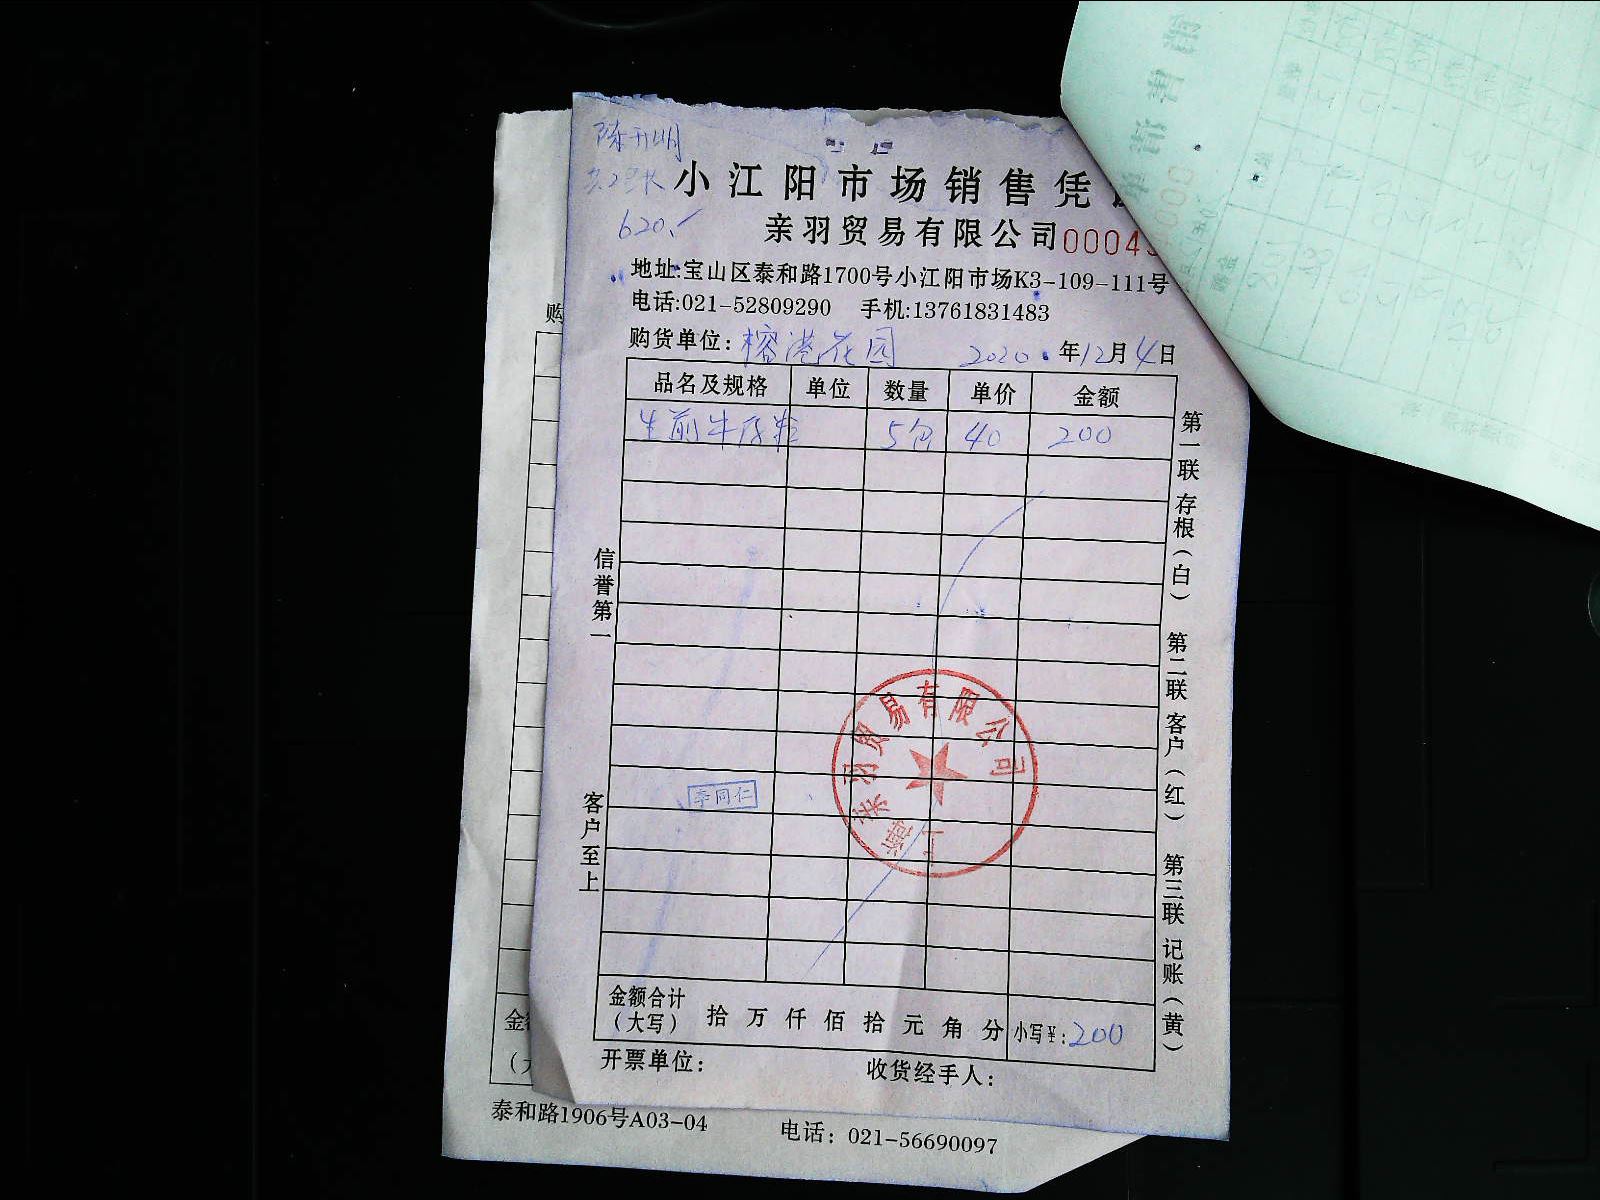 陈开明
620.-
小江阳市场销售凭
亲羽贸易有限公司 0004
地址:宝山区泰和路1700号小江阳市场K3-109-111号
电话:021-52809290 手机:13761831483
购货单位: 榕港花园 2020.年12月4日
品名及规格 单位 数量 单价 金额
生前牛仔粒 5包 40 200
第一联 存根(白) 第二联 客户(红) 第三联 记账(黄)
信誉第一
客户至上
李同仁
上海亲羽贸易有限公司
金额合计(大写) 拾 万 仟 佰 拾 元 角 分 小写¥: 200
开票单位: 收货经手人:
购
金
(大
泰和路1906号A03-04 电话: 021-56690097